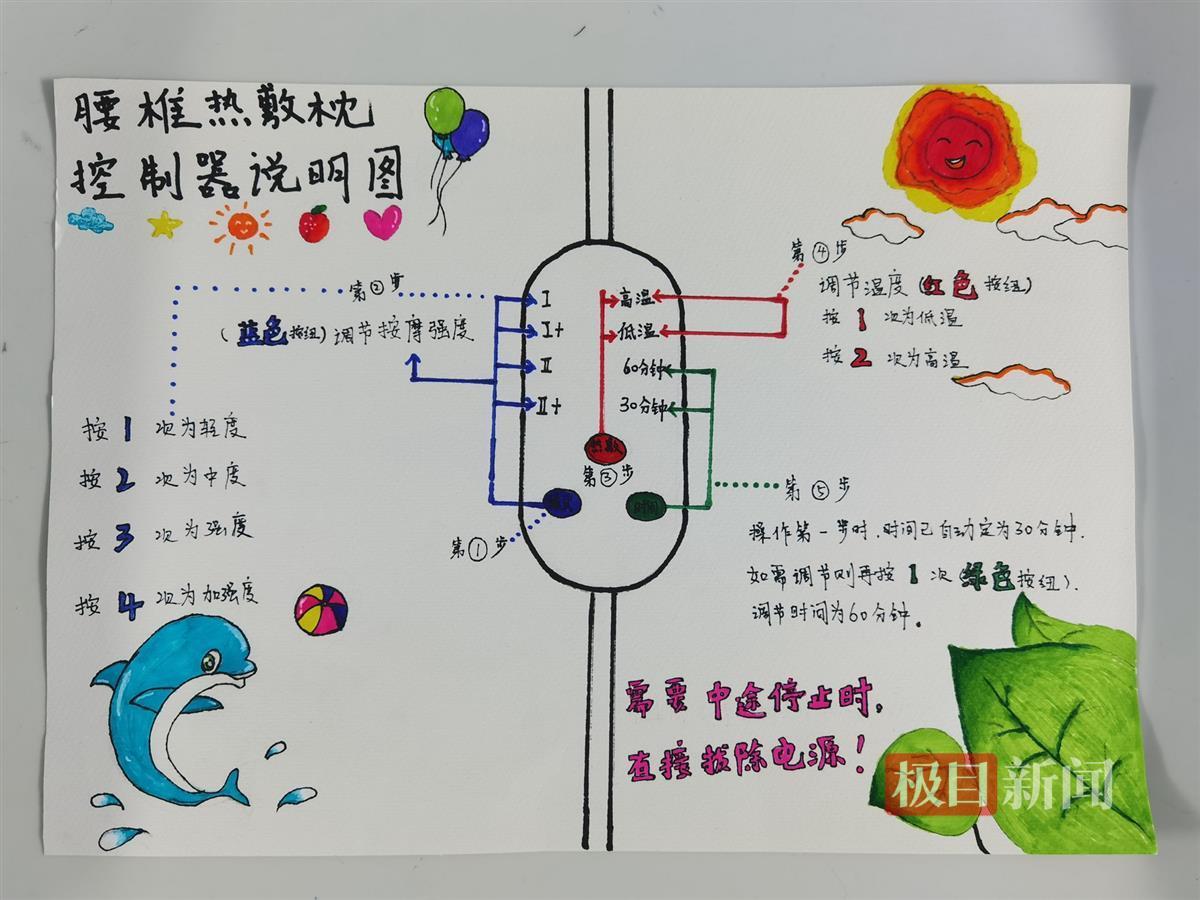 腰椎热敷枕
控制器说明图
第②步
(蓝色按钮)调节按摩强度
按1次为轻度
按2次为中度
按3次为强度
按4次为加强度
I
I+
II
II+
高温
低温
60分钟
30分钟
热敷
第③步
时间
第①步
第④步
调节温度(红色按钮)
按1次为低温
按2次为高温
第⑤步
操作第一步时,时间已自动定为30分钟.
如需调节则再按1次(绿色按钮).
调节时间为60分钟。
需要中途停止时,
直接拔除电源!
极目新闻